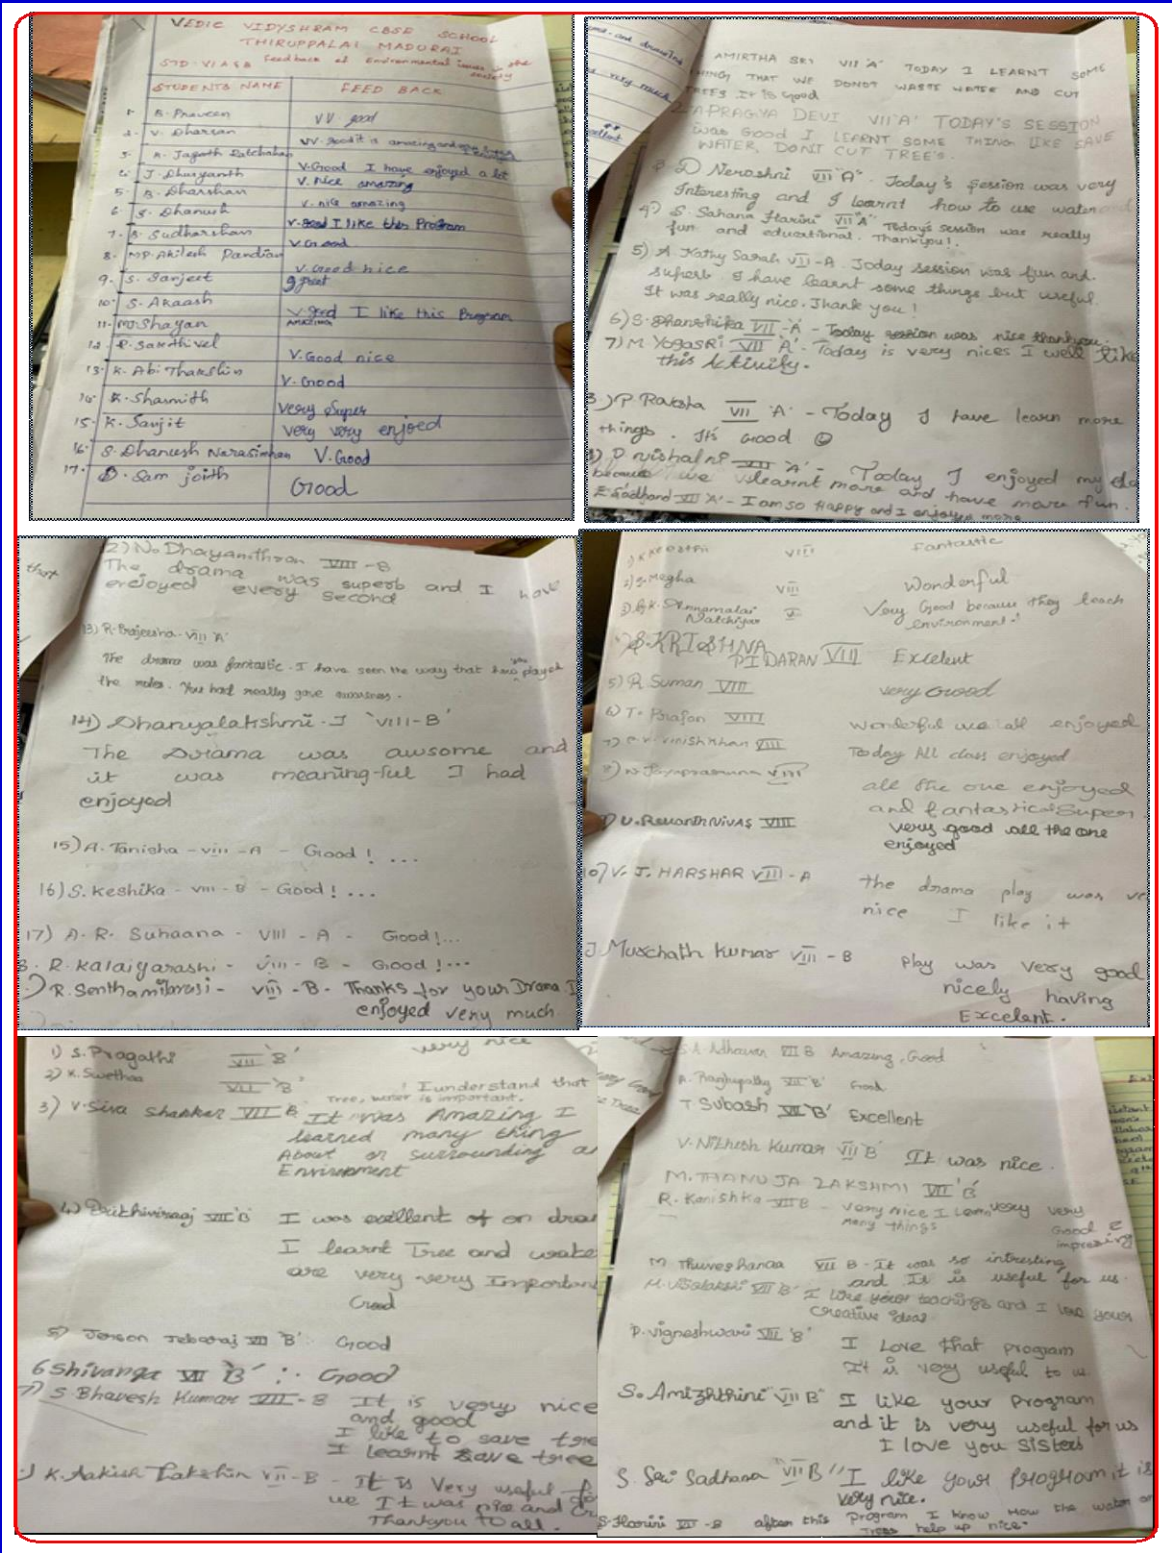 VEDIC VIDYSHRAM CBSE SCHOOL
THIRUPPALAI MADURAI
STD-VI A&B Feedback of Environmental issues in the society
STUDENTS NAME FEED BACK
1. B. Praveen VV. good
2. V. Dharsan VV. good it is amazing and
3. Jagath V. Good I have enjoyed a lot
4. J. Dhayanth V. Nice amazing
5. B. Dharshan V. nice amazing
6. S. Dhanush V. good I like this Program
7. S. Sudharshan V. Good
8. MP. Akilesh Pandian V. Good nice
9. S. Sanjeet great
10. S. Akaash V. good I like this Program
11. M. Shayan AMAZING
12. P. Sakthivel V. Good nice
13. K. Abi Tharshin V. Good
14. K. Sharmith Very Super
15. K. Sanjit very very enjoed
16. S. Dhanush Narasimhan V. Good
17. D. Sam joith Good
and drawing
very much
AMIRTHA SRI VII 'A' TODAY I LEARNT SOME
THING THAT WE DONOT WASTE WATER AND CUT
TREES It is Good
PRAGYA DEVI VII 'A' TODAY'S SESSION
was GOOD I LEARNT SOME THING LIKE SAVE
WATER, DON'T CUT TREE'S.
D Neroshni VII "A". Today's session was very
Interesting and I learnt how to use water
4) S. Sahana Harini VII "A" Today's session was really
fun and educational. Thankyou!.
5) A. Kathy Sarah VII-A. Today session was fun and
superb. I have learnt some things but useful.
It was really nice. Thank you!
6) S. Dhanshika VII-'A' - Today session was nice thankyou.
7) M. Yogasri VII 'A' - Today is very nices I well like
this Activity.
8) P. Raksha VII 'A' - Today I have learn more
things. It's Good
'A' - Today I enjoyed my da
because we learnt more and have more fun.
VII 'A' - I am so Happy and I enjoy more
2) N. Dhayanithran VIII-B
The drama was superb and I have
enjoyed every second
13) R. Prajeena - VIII 'A'
The drama was fantastic. I have seen the way that how you played
the roles. You had really gave awarness.
14) Dhanyalakshmi. J 'VIII-B'
The Drama was awsome and
it was meaning-ful I had
enjoyed
15) A. Tanisha - VIII - A - Good! ...
16) S. Keshika - VIII - B - Good! ...
17) A. R. Suhaana - VIII - A - Good! ...
R. Kalaiyarashi - VIII - B - Good! ...
R. Senthamilarasi - VIII - B - Thanks for your Drama I
enjoyed very much
VIII Fantastic
2) S. Megha VIII Wonderful
Annamalai Natchiyar V Very Good because they teach
environment!
S. KRISHNA
PIDARAN VIII Excelent
5) R Suman VIII very Good
6) T. Prajan VIII wonderful we all enjoyed
7) VIII Today All class enjoyed
8) N. Jayaprasanna VIII all the one enjoyed
and fantastic Super
9) U. Revanth Nivas VIII very good all the one
enjoyed
10) V. J. HARSHAR VIII - A the drama play was ve
nice I like it
J. Muschath Kumar VIII - B Play was very good
nicely having
Excelent.
very nice
1) S. Pragathi VII 'B'
2) K. Swethaa VII 'B' ! I understand that
Tree, water is important.
3) V. Siva Shankar VII B It was Amazing I
learned many thing
About or surrounding an
Envirnment
4) VII 'B' I was exllent of on dram
I learnt Tree and wate
are very very Important
Good
5) Jerson Jebaraj VII 'B' Good
6 Shivanga VII 'B' : Good
7) S Bhavesh Kumar VII-B It is very nice
and good
I like to save tree
I learnt save tree
VII-B - It is Very useful for
we It was nice and
Thankyou to all.
VII B Amazing, Good
VII 'B' Good
T Subash VII 'B' Excellent
V. Nithesh Kumar VII 'B' It was nice.
M. THANUJA LAKSHMI VII 'B'
R. Kanishka VII B - very nice I learn very very
many things Good & impresing
M Thuveghanaa VII B - It was so intresting
and It is useful for us.
M. VII 'B' I like your teachings and I love your
creative ideas
P. Vigneshwari VII 'B' I Love that program
It is very useful to us.
S. Amizhthini VII B" I like your Program
and it is very useful for us
I love you sisters
S. Sai Sadhana "VII B" I like your Program, it is
very nice.
S. Harini VII-B after this Program I know How the water
trees help up nice.